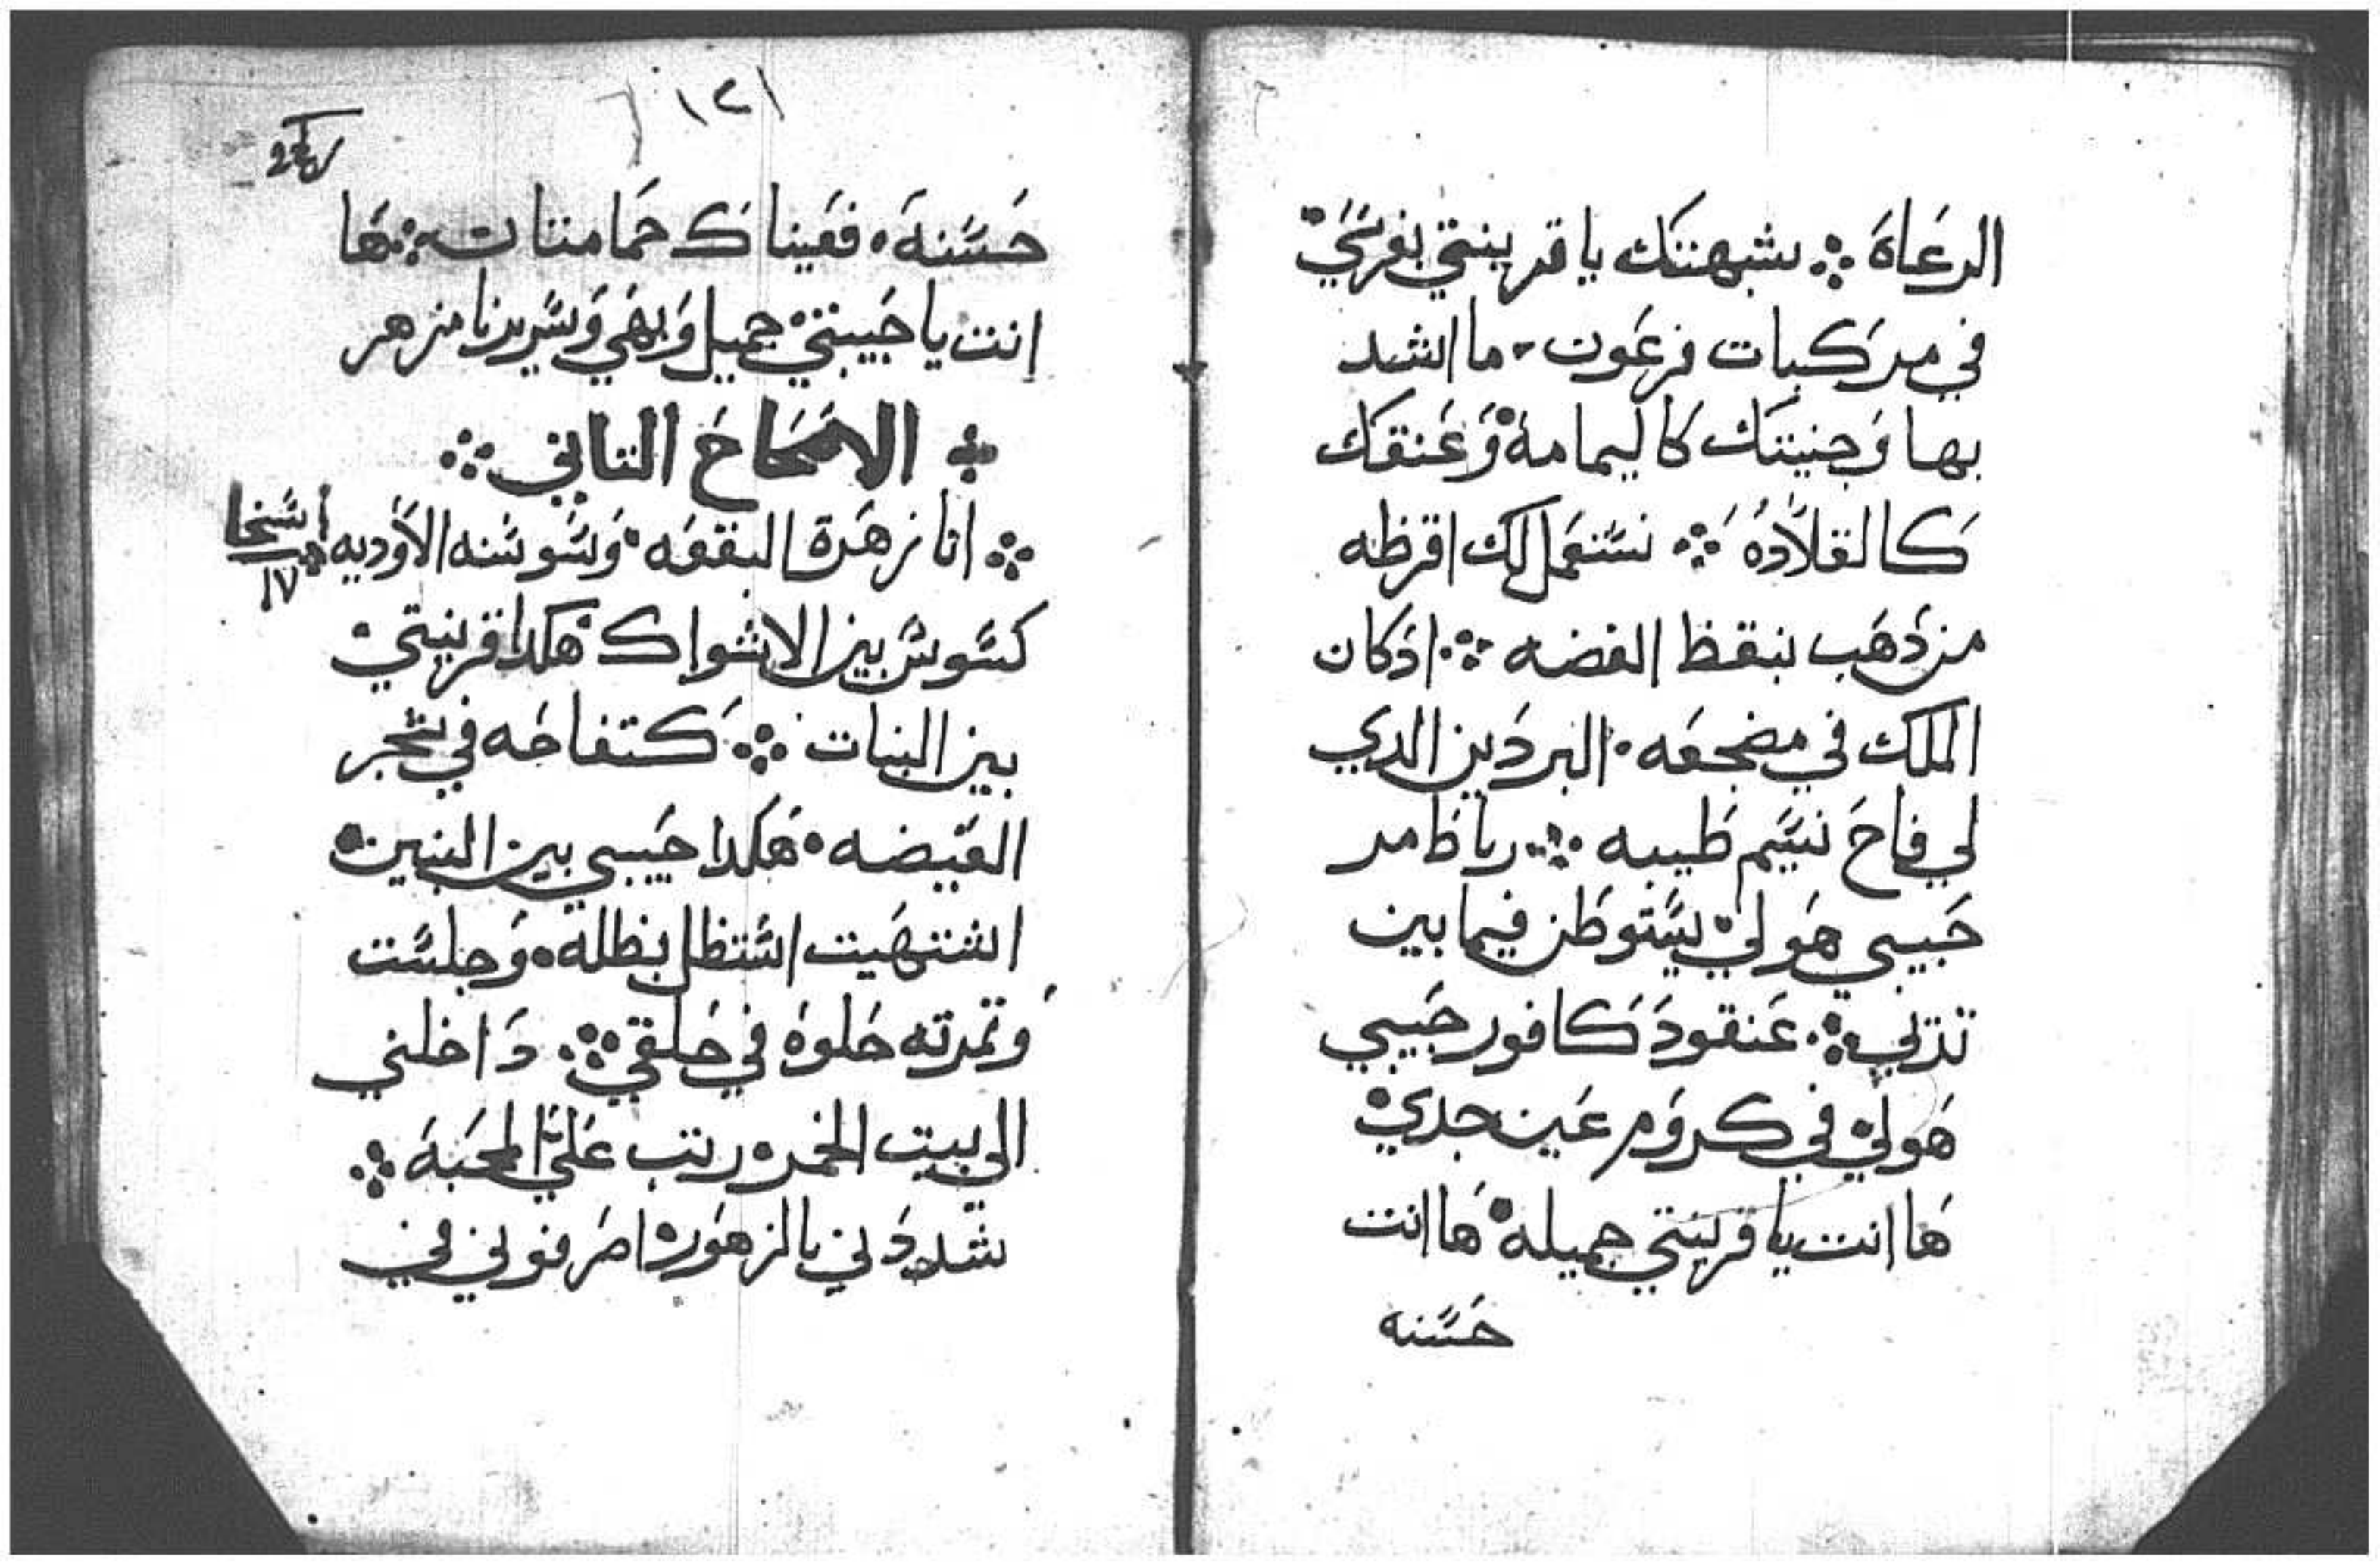 الرعاة ܀ شبهتك يا قرينتي بفرسي
في مركبات فرعون ٠ ما اشد
بها وجنيتك كاليمامة وعنقك
كالقلادة ܀ نستعمل لك اقرظه
من ذهب بنقظ الفضه ܀ اذ كان
الملك في مضجعه ٠ البردين الدي
لي فاح نسيم طيبه ܀ رباظ مر
حبيبي هو لي يستوطن فيما بين
تدتي ܀ عنقود كافور حبيبي
هو لي في كروم عين جدي
ها انت يا قرينتي جميله ها انت
حسنه
١٢١
حسنة ٠ فعيناك حمامتات ܀ ها
انت يا حبيبتي جميل وبهي وسريرنا مزهر
܀ الاصحاح التاني ܀
܀ انا زهرة البقعه ٠ وسوسنه الاوديه
١٧
كسوسن بين الاشواك هكدا قرينتي
بين البنات ܀ كتفاحه في شجر
الغيضه ٠ هكدا حبيبي بين البنين
اشتهيت استظل بظله ٠ وجلست
وتمرته حلوة في حلقي ܀ داخلني
الى بيت الخمر ٠ رتب علي المحبة ܀
شددني بالزهور ٠ اصرفوني في